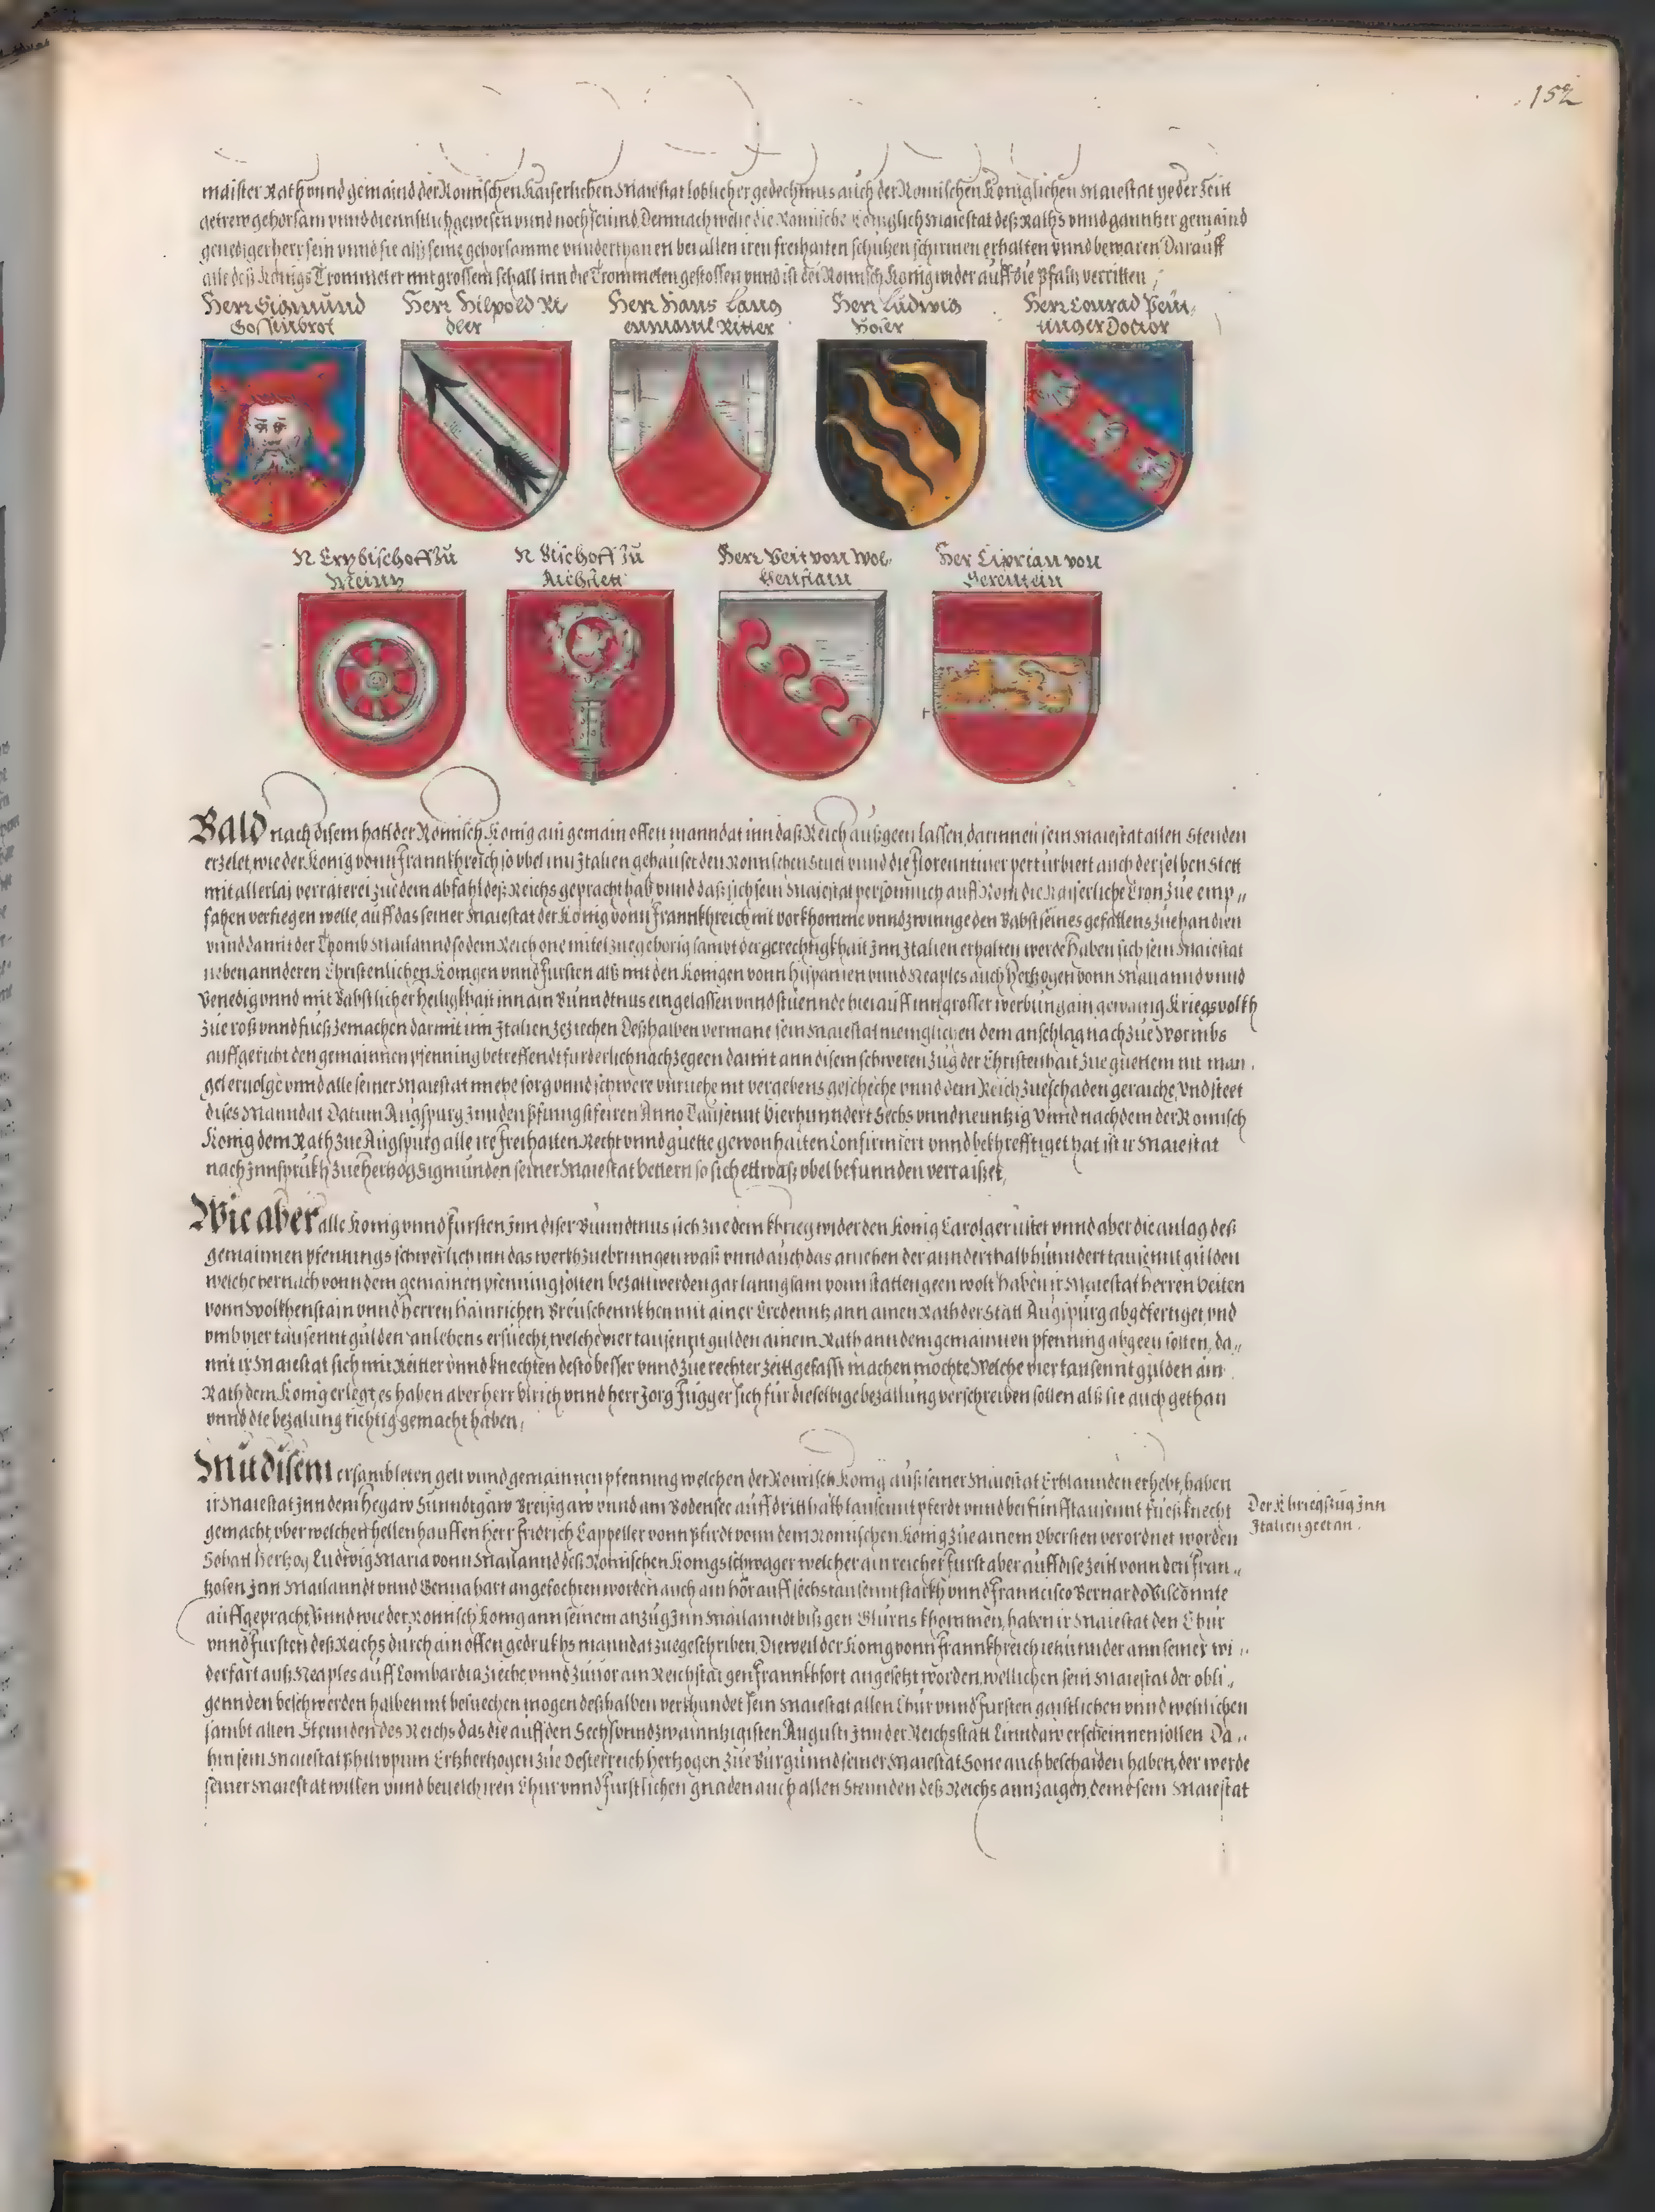 152
maister Rath vnnd gemaind der Romischen Kaiserlichen Maiestat loblicher gedechtnus auch der Romischen Koniglichen Maiestat yeder Zeitt
getrew gehorsam vnnd diennstlich gewesen vnnd noch seiind, Demnach welle die Romische Koniglich Maiestat deß Raths vnnd ganntzer gemaind
genediger herr sein vnnd sie alß seine gehorsamme vnnderthanen bei allen iren freihaiten schutzen schirmen erhalten vnnd bewaren Darauff
alle deß Königs Trommeter mit grossem schall inn die Trommeten gestossen vnnd ist der Romisch Konig wider auff die Pfaltz verritten,
Herr Sigmund
Gossenbrot
Herr Hilpold Ri-
dler
Herr Hans Lang
enmantl Ritter
Herr Ludwig
Hoser
Herr Conrad Peut-
inger Doctor
N Ertzbischoff Zů
Meintz
N Bischoff Zů
Aichstett
Herr Veit von Wol-
kenstain
Her Ciprian von
Serentein
Bald nach disem hatt der Romisch Konig ain gemain offen manndat inn daß Reich außgeen lassen, darinnen sein Maiestat allen Stenden
erzelet, wie der Konig vonn Frannkhreich so vbel inn Italien gehauset den Romischen Stuel vnnd die Florenntiner perturbiert auch derselben Stett
mit allerlai verräterei zue dem abfahl deß Reichs gepracht hab, vnnd daß sich sein Maiestat personnlich auff Rom die Kaiserliche Cron zue emp-
fahen verfiegen welle, auff das seiner Maiestat der König vonn Frannkhreich nit vorkhomme vnnd zwinnge den Babst seines gefallens zue handlen
vnnd damit der Thomb Mailannd so dem Reich one mitel zuegehorig sambt der gerechtigkhait Inn Italien erhalten werde haben sich sein Maiestat
neben annderen Christenlichen Konigen vnnd Fursten alß mit den Konigen vonn Hispanien vnnd Neaples auch Hertzogen vonn Mailannd vnnd
Venedig vnnd mit Babstlicher Heiligkhait inn ain Bundtnus eingelassen vnnd stuennde hierauff inn grosser werbung ain gewaltig Kriegsvolkh
zue roß vnnd fuoß ze machen darmit inn Italien ze ziechen Deßhalben vermane sein Maiestat menniglichen dem anschlag nach zue Wormbs
auffgericht den gemainnen pfenning betreffendt furderlich nachzegeen damit ann disem schweren zug der Christenhait zue guettem nit man-
gel eruolge vnnd alle seiner Maiestat muehe sorg vnnd schwere vnruehe nit vergebens gescheche vnnd dem Reich zue schaden geraiche, Vnd steet
dises Manndat Datum Augspurg Inn den Pfinngstfeiren Anno Tausennt Vierhunndert Sechs vnnd neuntzig Vnnd nachdem der Romisch
König dem Rath zue Augspurg alle ire freihaiten Recht vnnd guette gewonhaiten Confirmiert vnnd bekhrefftiget hat ist ir Maiestat
nach Innsprukh zue Hertzog Sigmunden seiner Maiestat vettern so sich ettwaß vbel befunnden verraiset,
Wie aber alle Konig vnnd Fursten Inn diser Bunndtnus sich zue dem khrieg wider den König Carol gerüstet vnnd aber die anlag deß
gemainnen pfennings schwerlich inn das werkh zuebrinngen waß vnnd auch das anlehen der annderthalb hunndert tausennt gulden
welche hernach vonn dem gemainen pfenning solten bezalt werden gar lanngsam vonn statten geen wolt haben ir Maiestat Herren Veiten
vonn Wolkhenstain vnnd Herren Hainrichen Breuschennkhen mit ainer Credenntz ann ainen Rath der Statt Augspurg abgefertiget, vnd
vmb vier tausennt gulden anlehens ersuecht, welche vier tausennt gulden ainem Rath ann dem gemainnen pfenning abgeen solten, da-
mit ir Maiestat sich mit Reitter vnnd knechten desto besser vnnd zue rechter zeitt gefasst machen mochte, Welche vier tausennt gulden ain
Rath dem Konig erlegt, es haben aber herr Vlrich vnnd herr Jorg Fugger sich fur dieselbige bezallung verschreiben sollen alß sie auch gethan
vnnd die bezalung richtig gemacht haben,
Mit disem ersambleten gelt vnnd gemainnen pfenning welchen der Romisch Konig auß seiner Maiestat Erblannden erhebt, haben
ir Maiestat Inn dem Hegaw Sunndtgaw Breißgaw vnnd am Bodensee auff dritthalb tausennt pferdt vnnd bei funff tausennt fueßknecht
gemacht, vber welchen hellen hauffen herr Fridrich Cappeller vonn Pfirdt vonn dem Romischen Konig zue ainem Obersten verordnet worden
Sobatt Hertzog Ludwig Maria vonn Mailannd deß Romischen Konigs schwager welcher ain reicher Furst aber auff dise zeitt vonn den Fran-
tzosen Inn Mailanndt vnnd Genua hart angefochten worden auch ain hör auff sechs tausennt starkh vnnd Francisco Bernardo Visconnte
auffgepracht, Vnnd wie der Romisch Konig ann seinem anzug Inn Mailanndt biß gen Glurns khommen, haben ir Maiestat den Chur
vnnd Fursten deß Reichs durch ain offen gedrukhs manndat zuegeschriben, Dieweil der Konig vonn Frannkhreich ietzunnder ann seiner wi-
derfart auß Neaples auff Lombardia zieche vnnd zuuor ain Reichstag gen Frannkhfort angesetzt worden, wellichen sein Maiestat der obli-
gennden beschwerden halben nit besuechen mogen deßhalben verkhundet sein Maiestat allen Chur vnnd Fursten gaistlichen vnnd weltlichen
sambt allen Stennden des Reichs das die auff den Sechs vnnd zwainntzigisten Augusti Inn der Reichsstatt Linndaw erscheinnen sollen Da-
hin sein Maiestat Philippum Ertzhertzogen zue Oesterreich Hertzogen zue Burgunnd seiner Maiestat Sone auch bescharden haben, der werde
seiner Maiestat willen vnnd beuelch iren Chur vnnd Furstlichen gnaden auch allen Stennden deß Reichs annzaigen, denn sein Maiestat
Der Khriegszug Inn
Italien geet an.